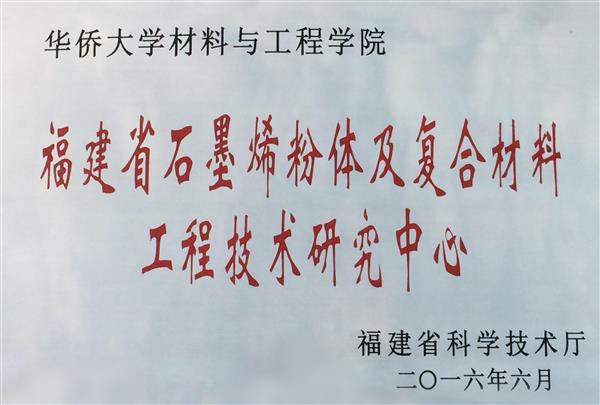 华侨大学材料与工程学院
福建省石墨烯粉体及复合材料
工程技术研究中心
福建省科学技术厅
二〇一六年六月